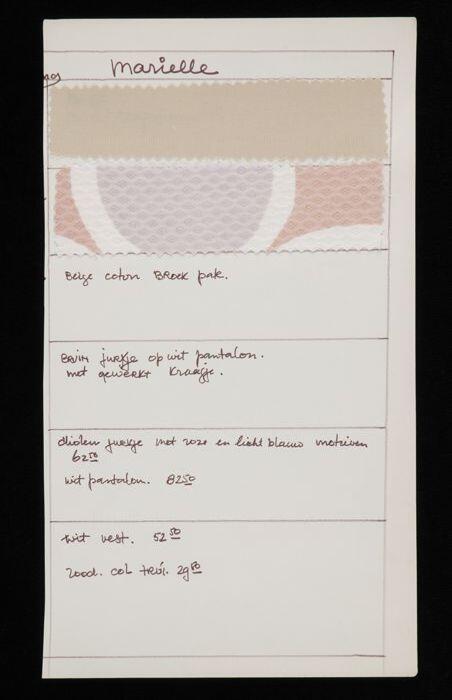 Marielle
Beige coton Broek pak.
Bruin jurkje op wit pantalon.
met gewerkt kraagje.
diolen jurkje met roze en licht blauw motieven
62 50
wit pantalon. 82 50
wit vest. 52 50
rood. col trui. 29 50